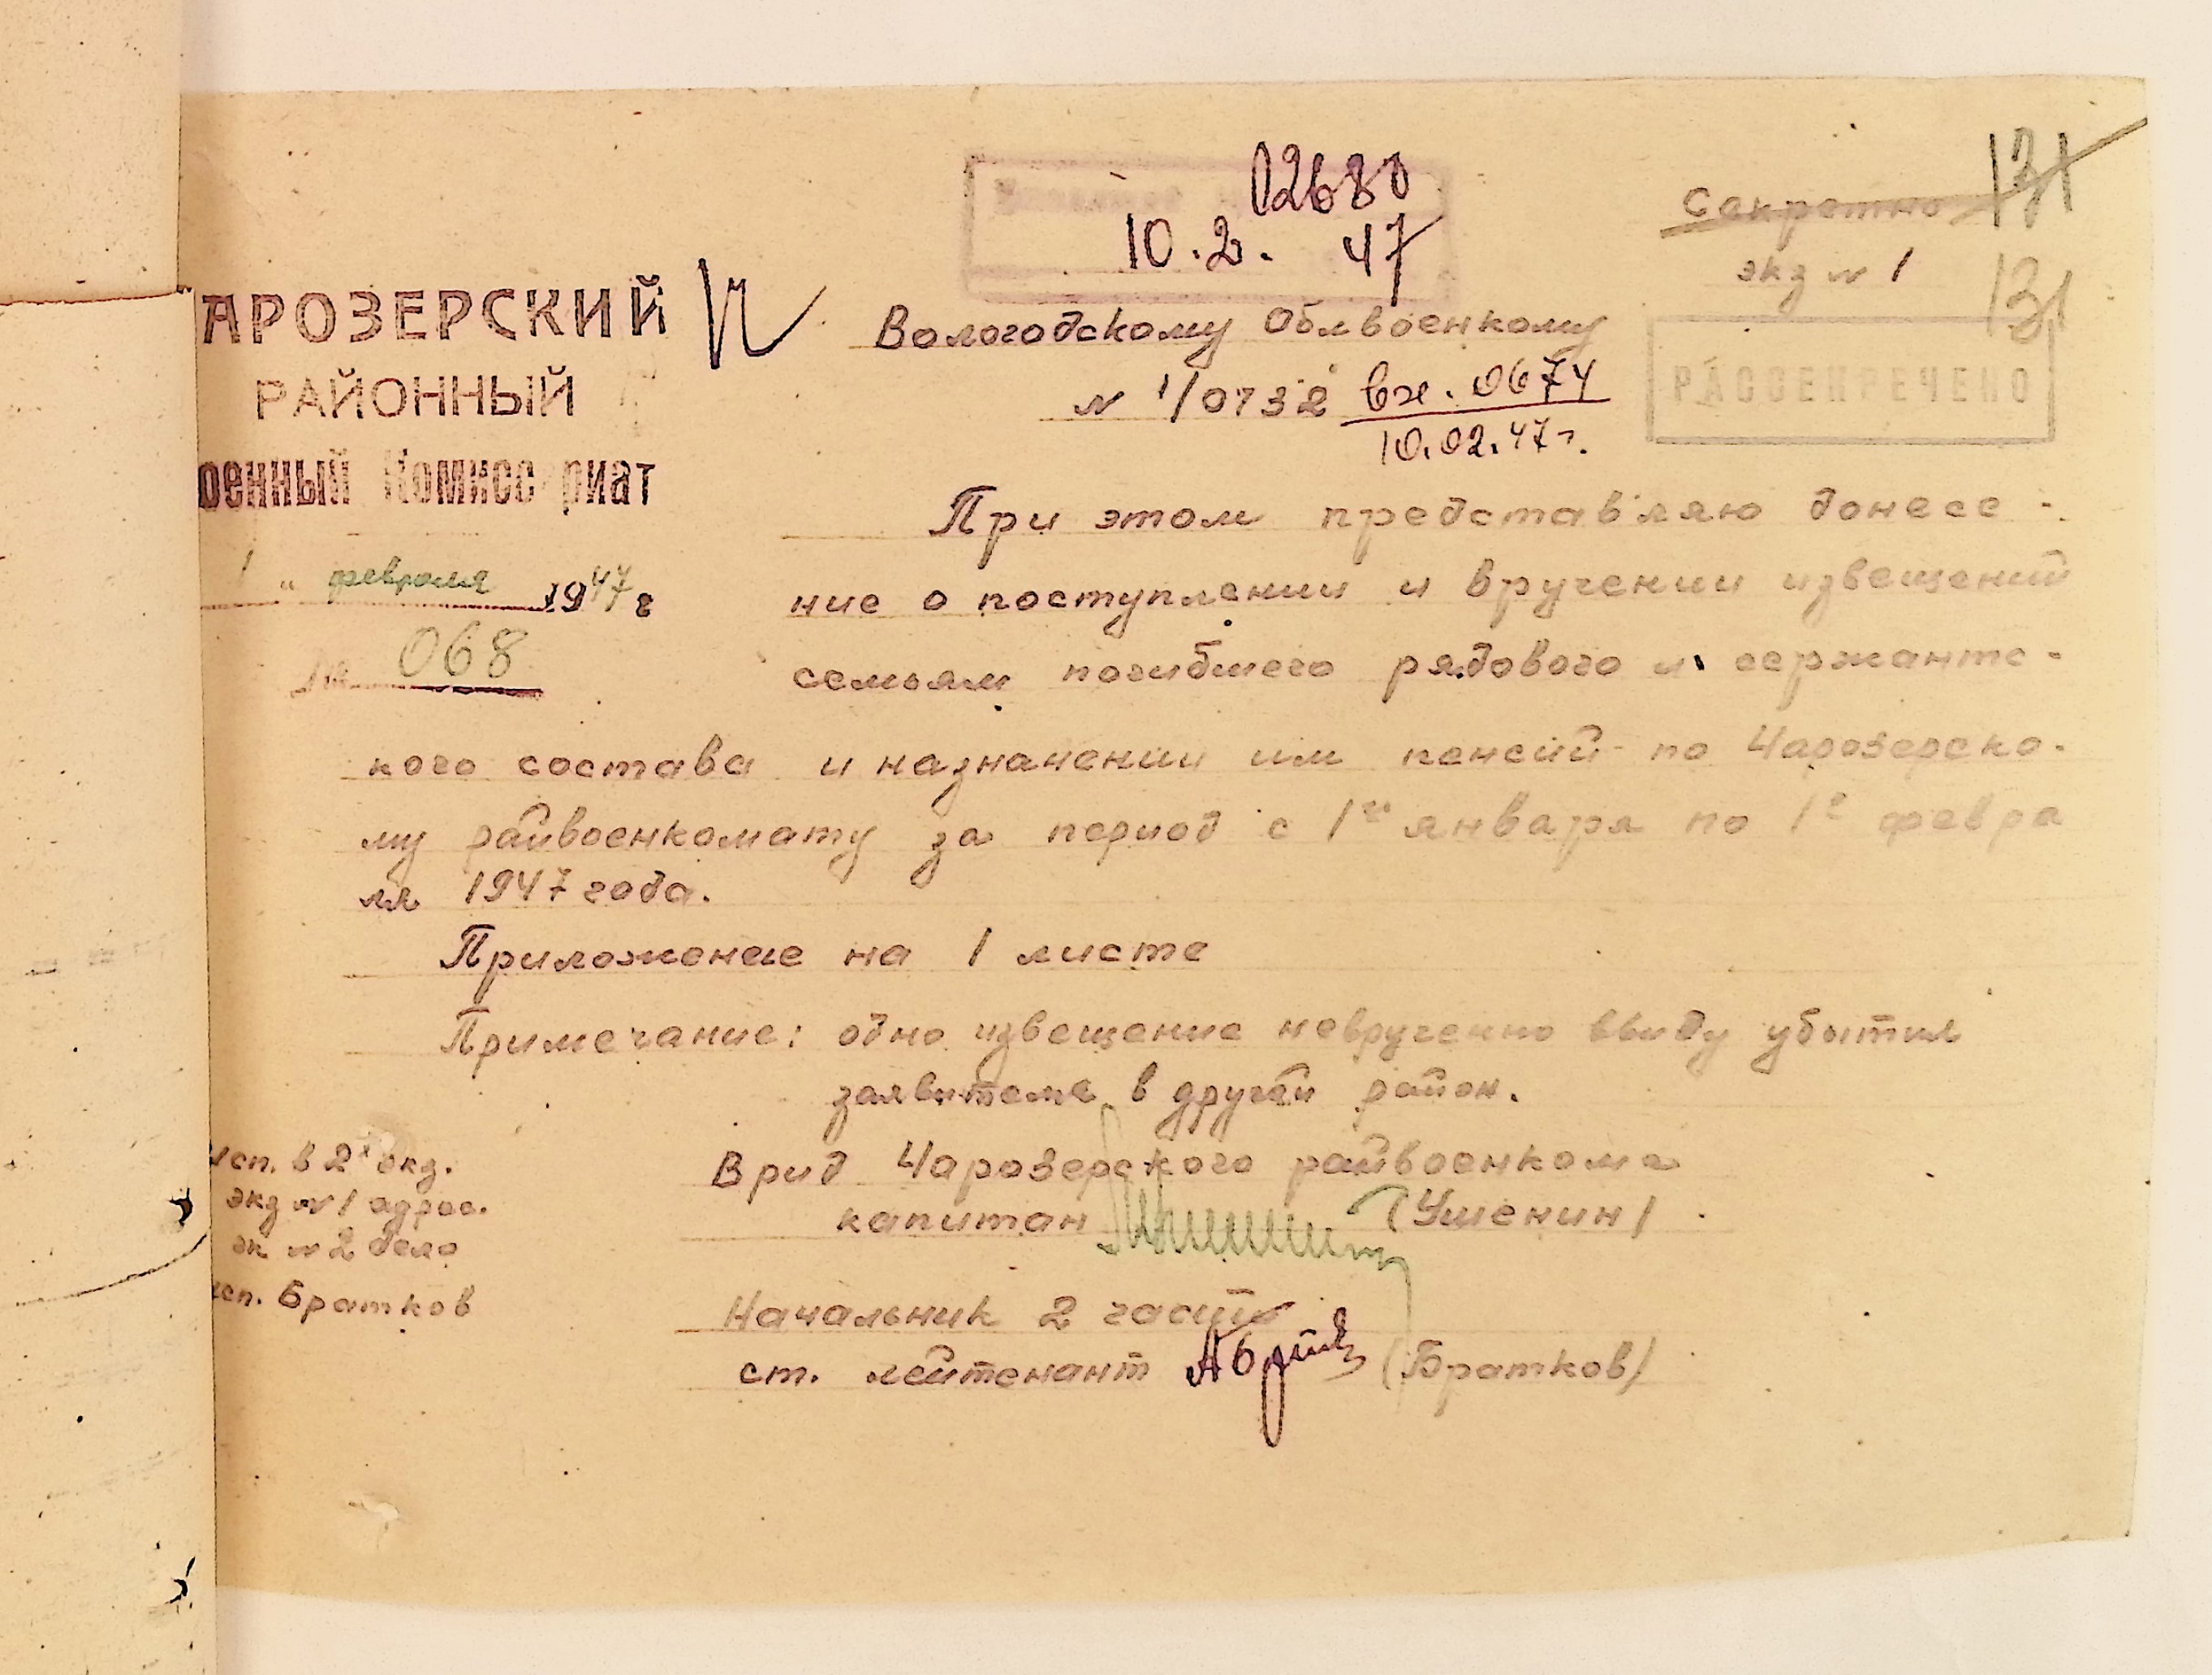 02680
10.2. 47
131
Секретно
экз № 1
131
РАССЕКРЕЧЕНО
АРОЗЕРСКИЙ
РАЙОННЫЙ
оенный Комисс риат
1 " февраля 1947 г
№ 068
Вологодскому Облвоенкому
№ 1/0732 вх. 0674
10.02.47г.
При этом представляю донесе -
ние о поступлении и вручении извещений
семьям погибшего рядового и сержантс-
кого состава и назначении им пенсий по Чарозерско-
му райвоенкомату за период с 1го января по 1е февра
ля 1947 года.
Приложение на 1 листе
Примечание: одно извещение невручено ввиду убытия
заявителя в другой район.
Врид Чарозерского райвоенкома
капитан (Ушенин)
Начальник 2 части
ст. лейтенант (Братков)
исп. в 2х экз.
экз №1 адрес.
эк №2 дело
исп. Братков